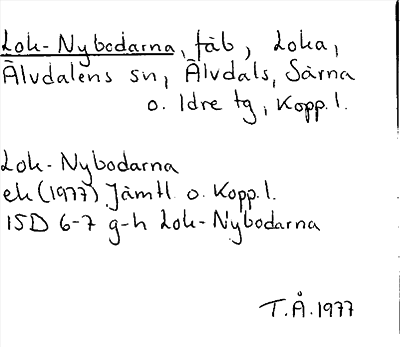 Lok-Nybodarna, fäb, Loka,
Älvdalens sn, Älvdals, Särna
o. Idre tg, Kopp. l.
Lok-Nybodarna
ek (1977) Jämtl o. Kopp. l.
15D 6-7 g-h Lok-Nybodarna
T.Å. 1977